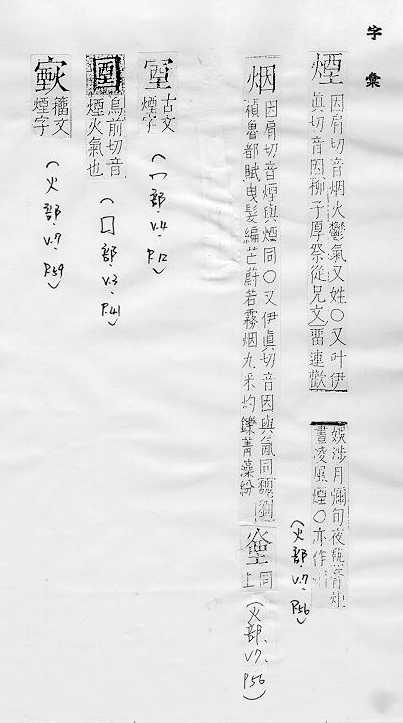 字彙
煙
因肩切音烟火鬱氣又姓○又叶伊
真切音因柳子厚祭從兄文畱連歡
娛涉月彌旬夜
晝凌風煙○亦作
(火部、V.7、P.56)
烟
因肩切音煙與煙同○又伊真切音因與氤同魏劉
楨魯都賦曳髮編芒蔚若霧烟九采灼鑠菁藻紛
同上
(火部、V.7、P.56)
古文
煙字
(宀部、V.4、P.12)
烏前切音
煙火氣也
(囗部、V.3、P.41)
籀文
煙字
(火部、V.7、P.59)